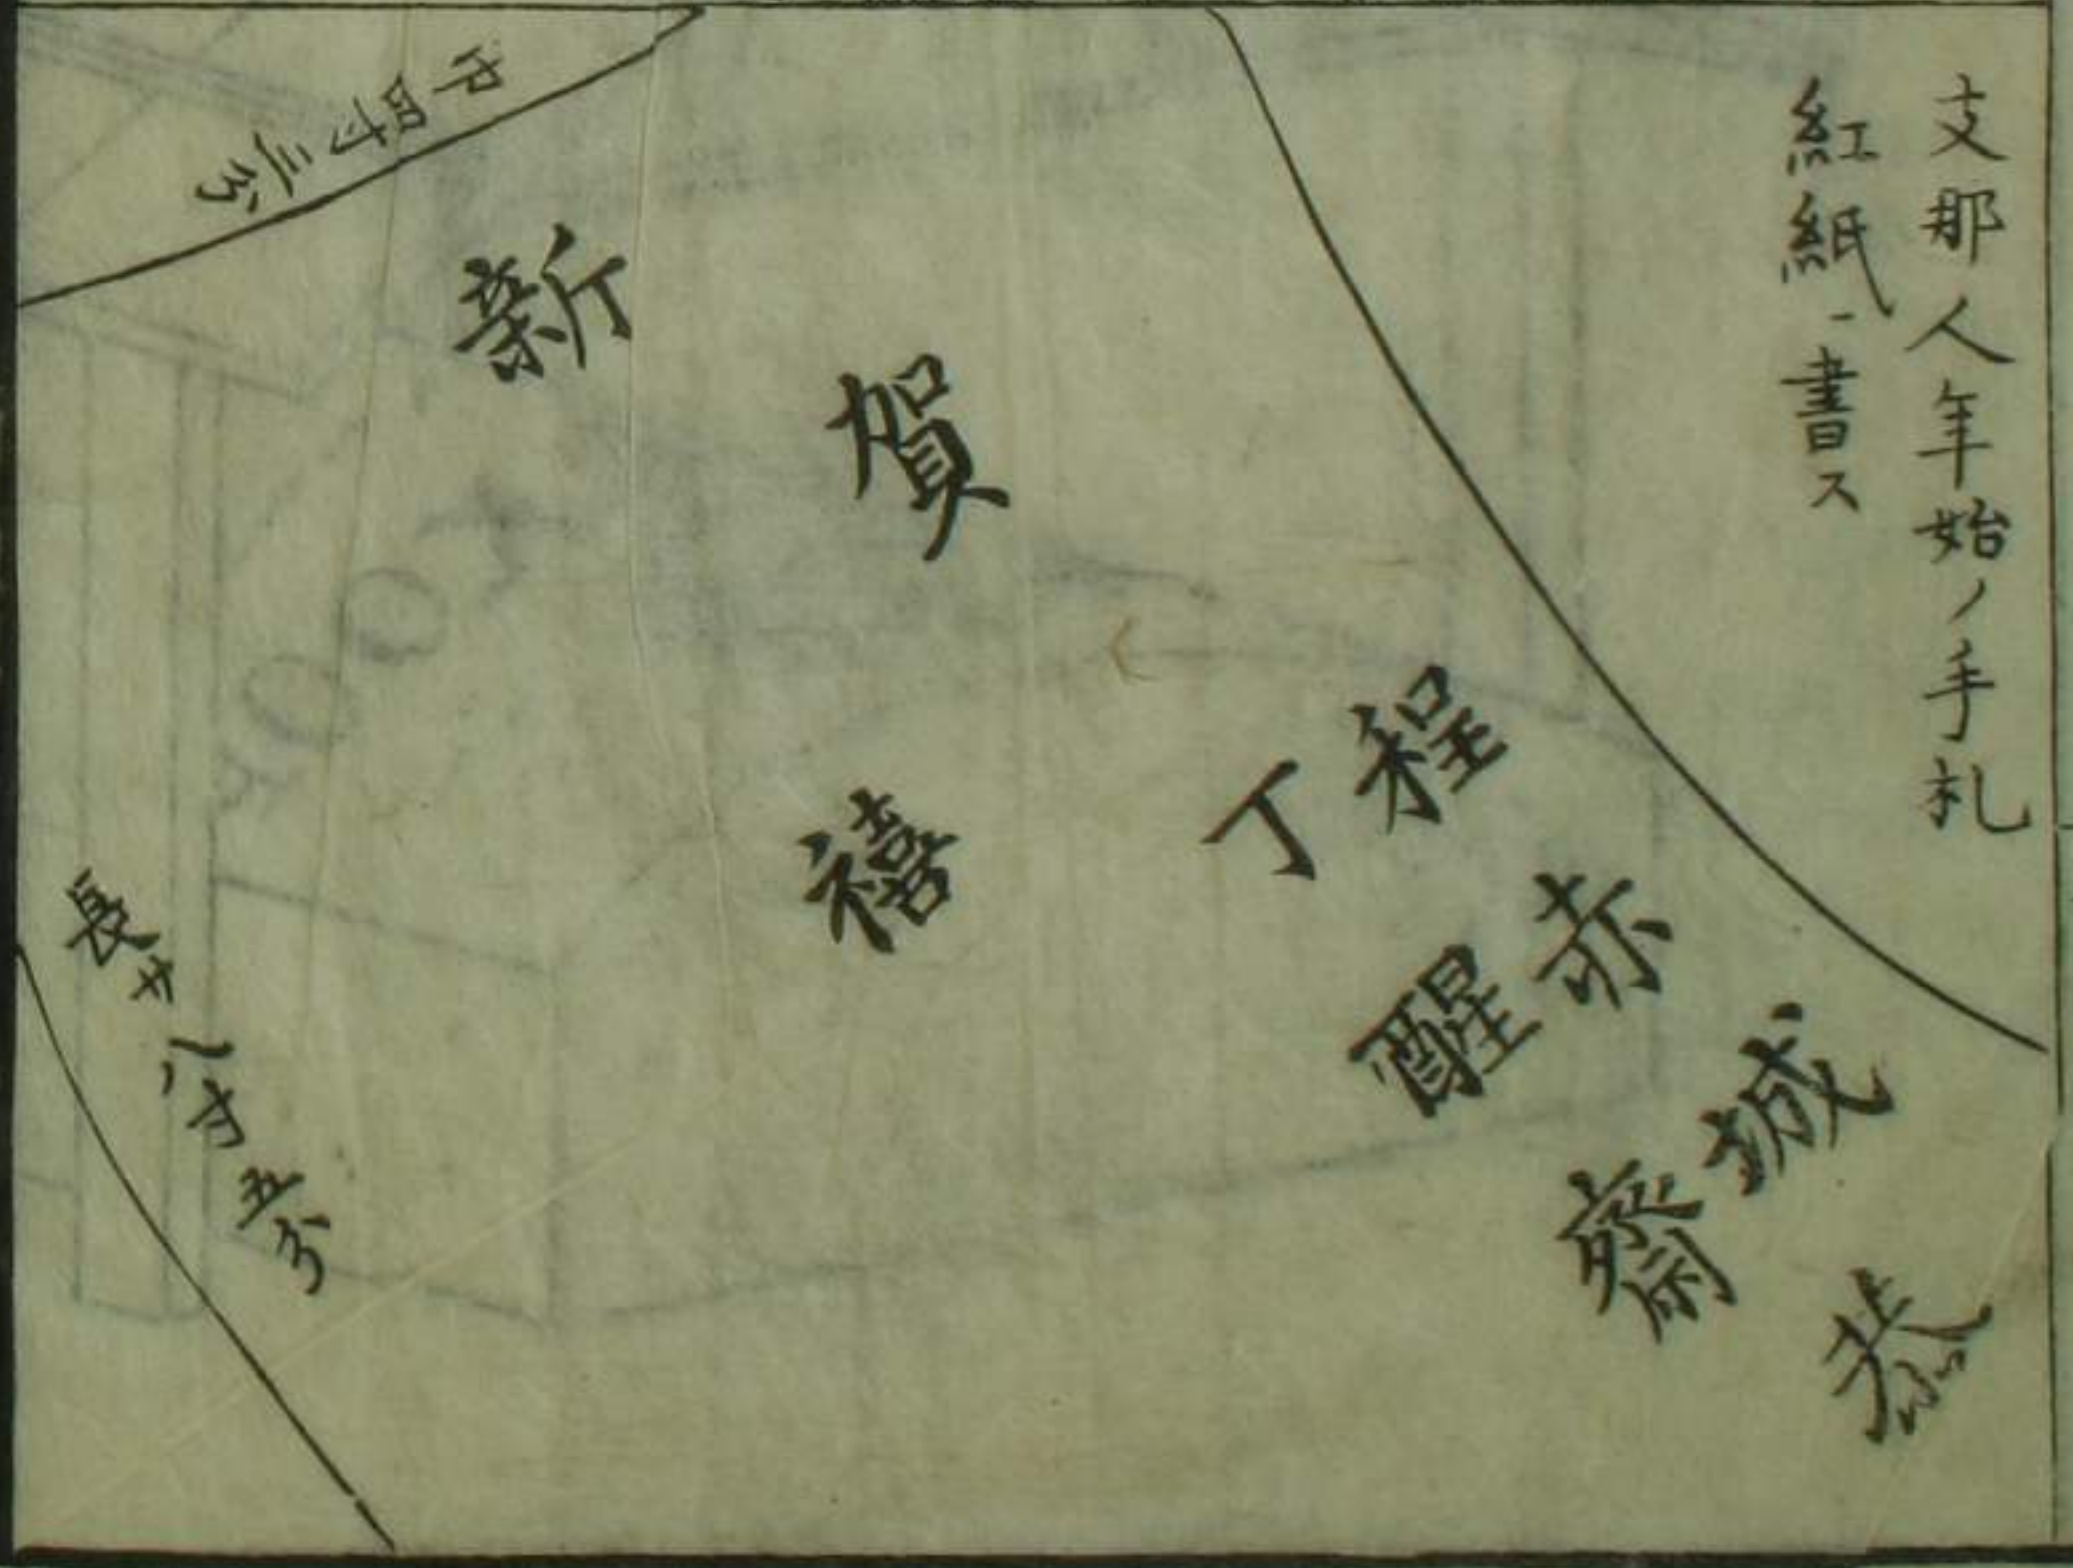 支那人年始ノ手札
紅紙ニ書ス
程赤城
丁醒齋
恭
賀
新
禧
巾四寸三分
長サ八寸五分